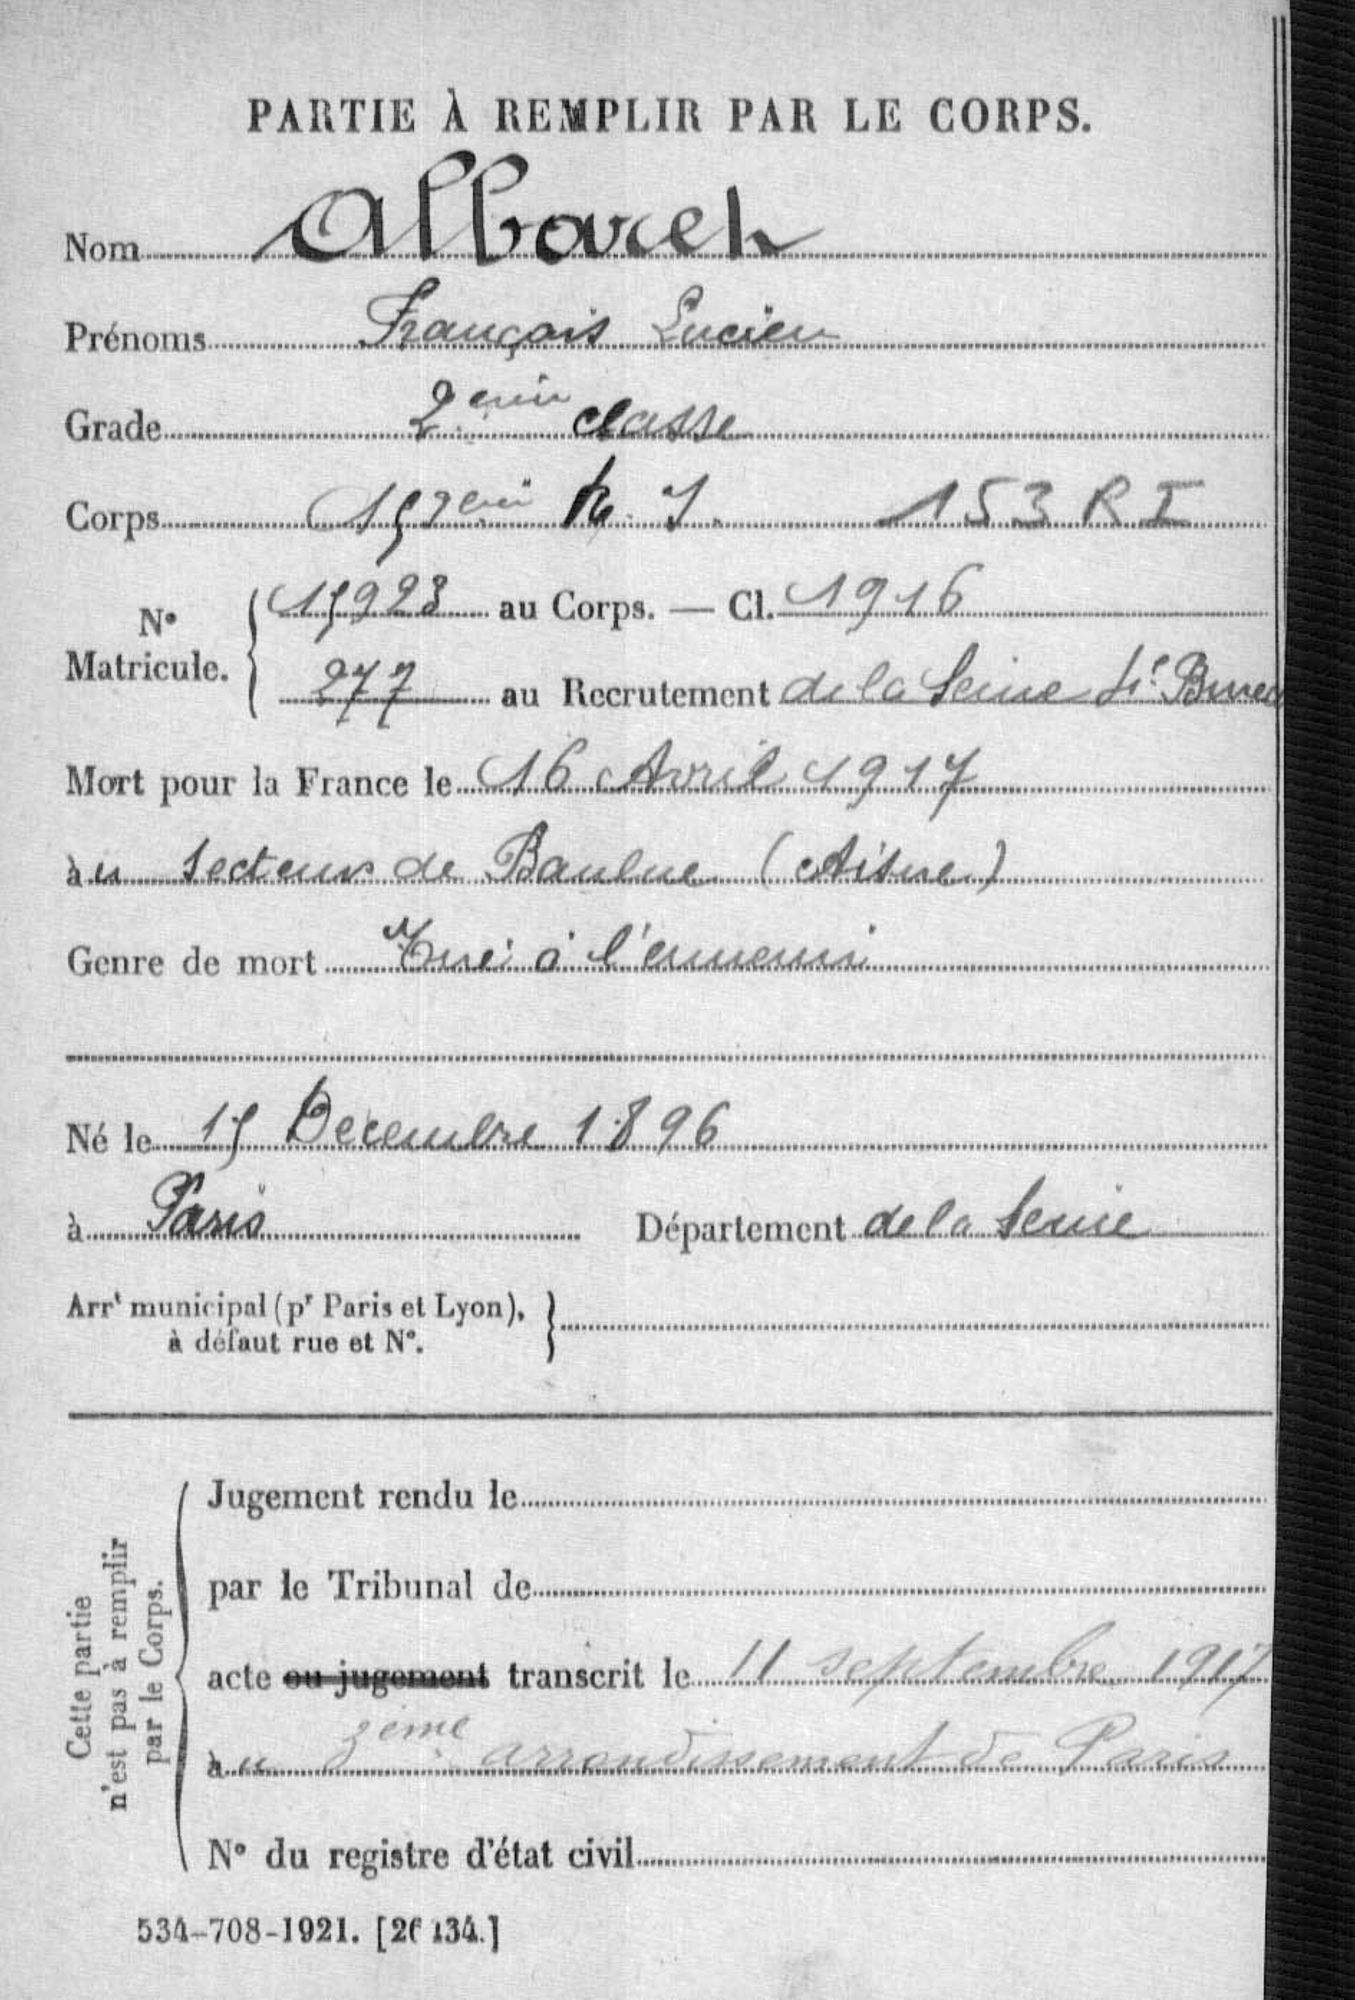 PARTIE À REMPLIR PAR LE CORPS.
Nom Albarel
Prénoms François Lucien
Grade 2eme classe
Corps 153eme R. I. 153 RI
N° Matricule. 15923 au Corps. — Cl. 1916
277 au Recrutement de la Seine
Mort pour la France le 16 Avril 1917
àu Secteur de Baulne (Aisne)
Genre de mort Tué à l'ennemi
Né le 15 Decembre 1896
à Paris Département de la Seine
Arrt municipal (pr Paris et Lyon),
à défaut rue et N°.
Cette partie
n'est pas à remplir
par le Corps.
Jugement rendu le
par le Tribunal de
acte ou jugement transcrit le 11 septembre 1917
àu 3ème arrondissement de Paris
N° du registre d'état civil
534-708-1921. [26134.]